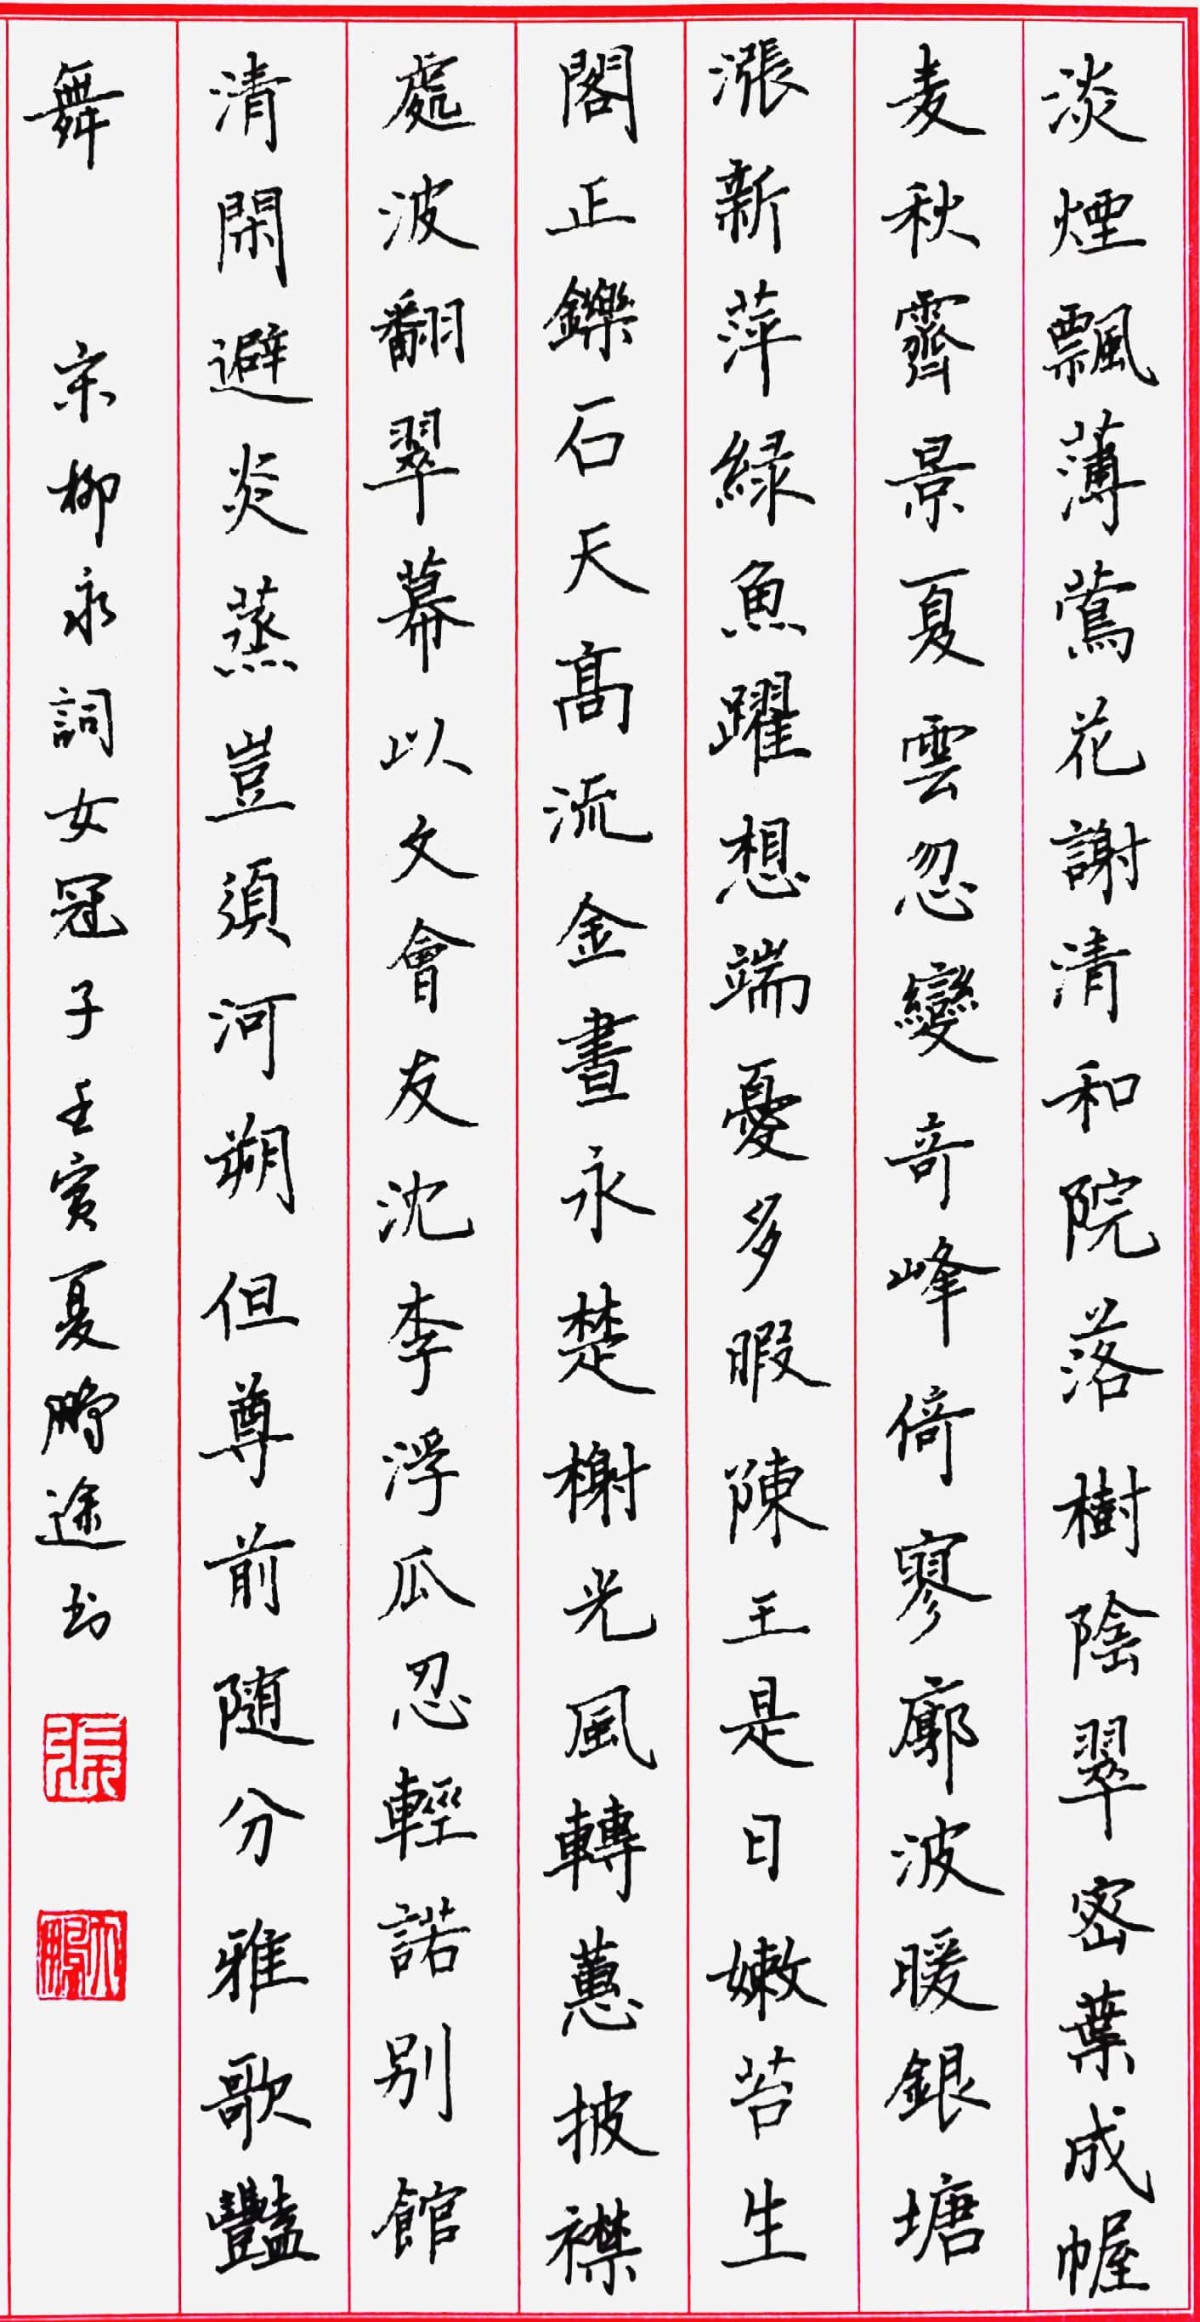 淡煙飄薄鶯花謝清和院落樹陰翠密葉成幄
麦秋霽景夏雲忽變奇峰倚寥廓波暖銀塘
漲新萍緑魚躍想端憂多暇陳王是日嫩苔生
閣正鑠石天高流金晝永楚榭光風轉蕙披襟
處波翻翠幕以文會友沈李浮瓜忍輕諾别館
清閑避炎蒸豈須河朔但尊前随分雅歌豔
舞
宋柳永詞女冠子壬寅夏鵬途书
張